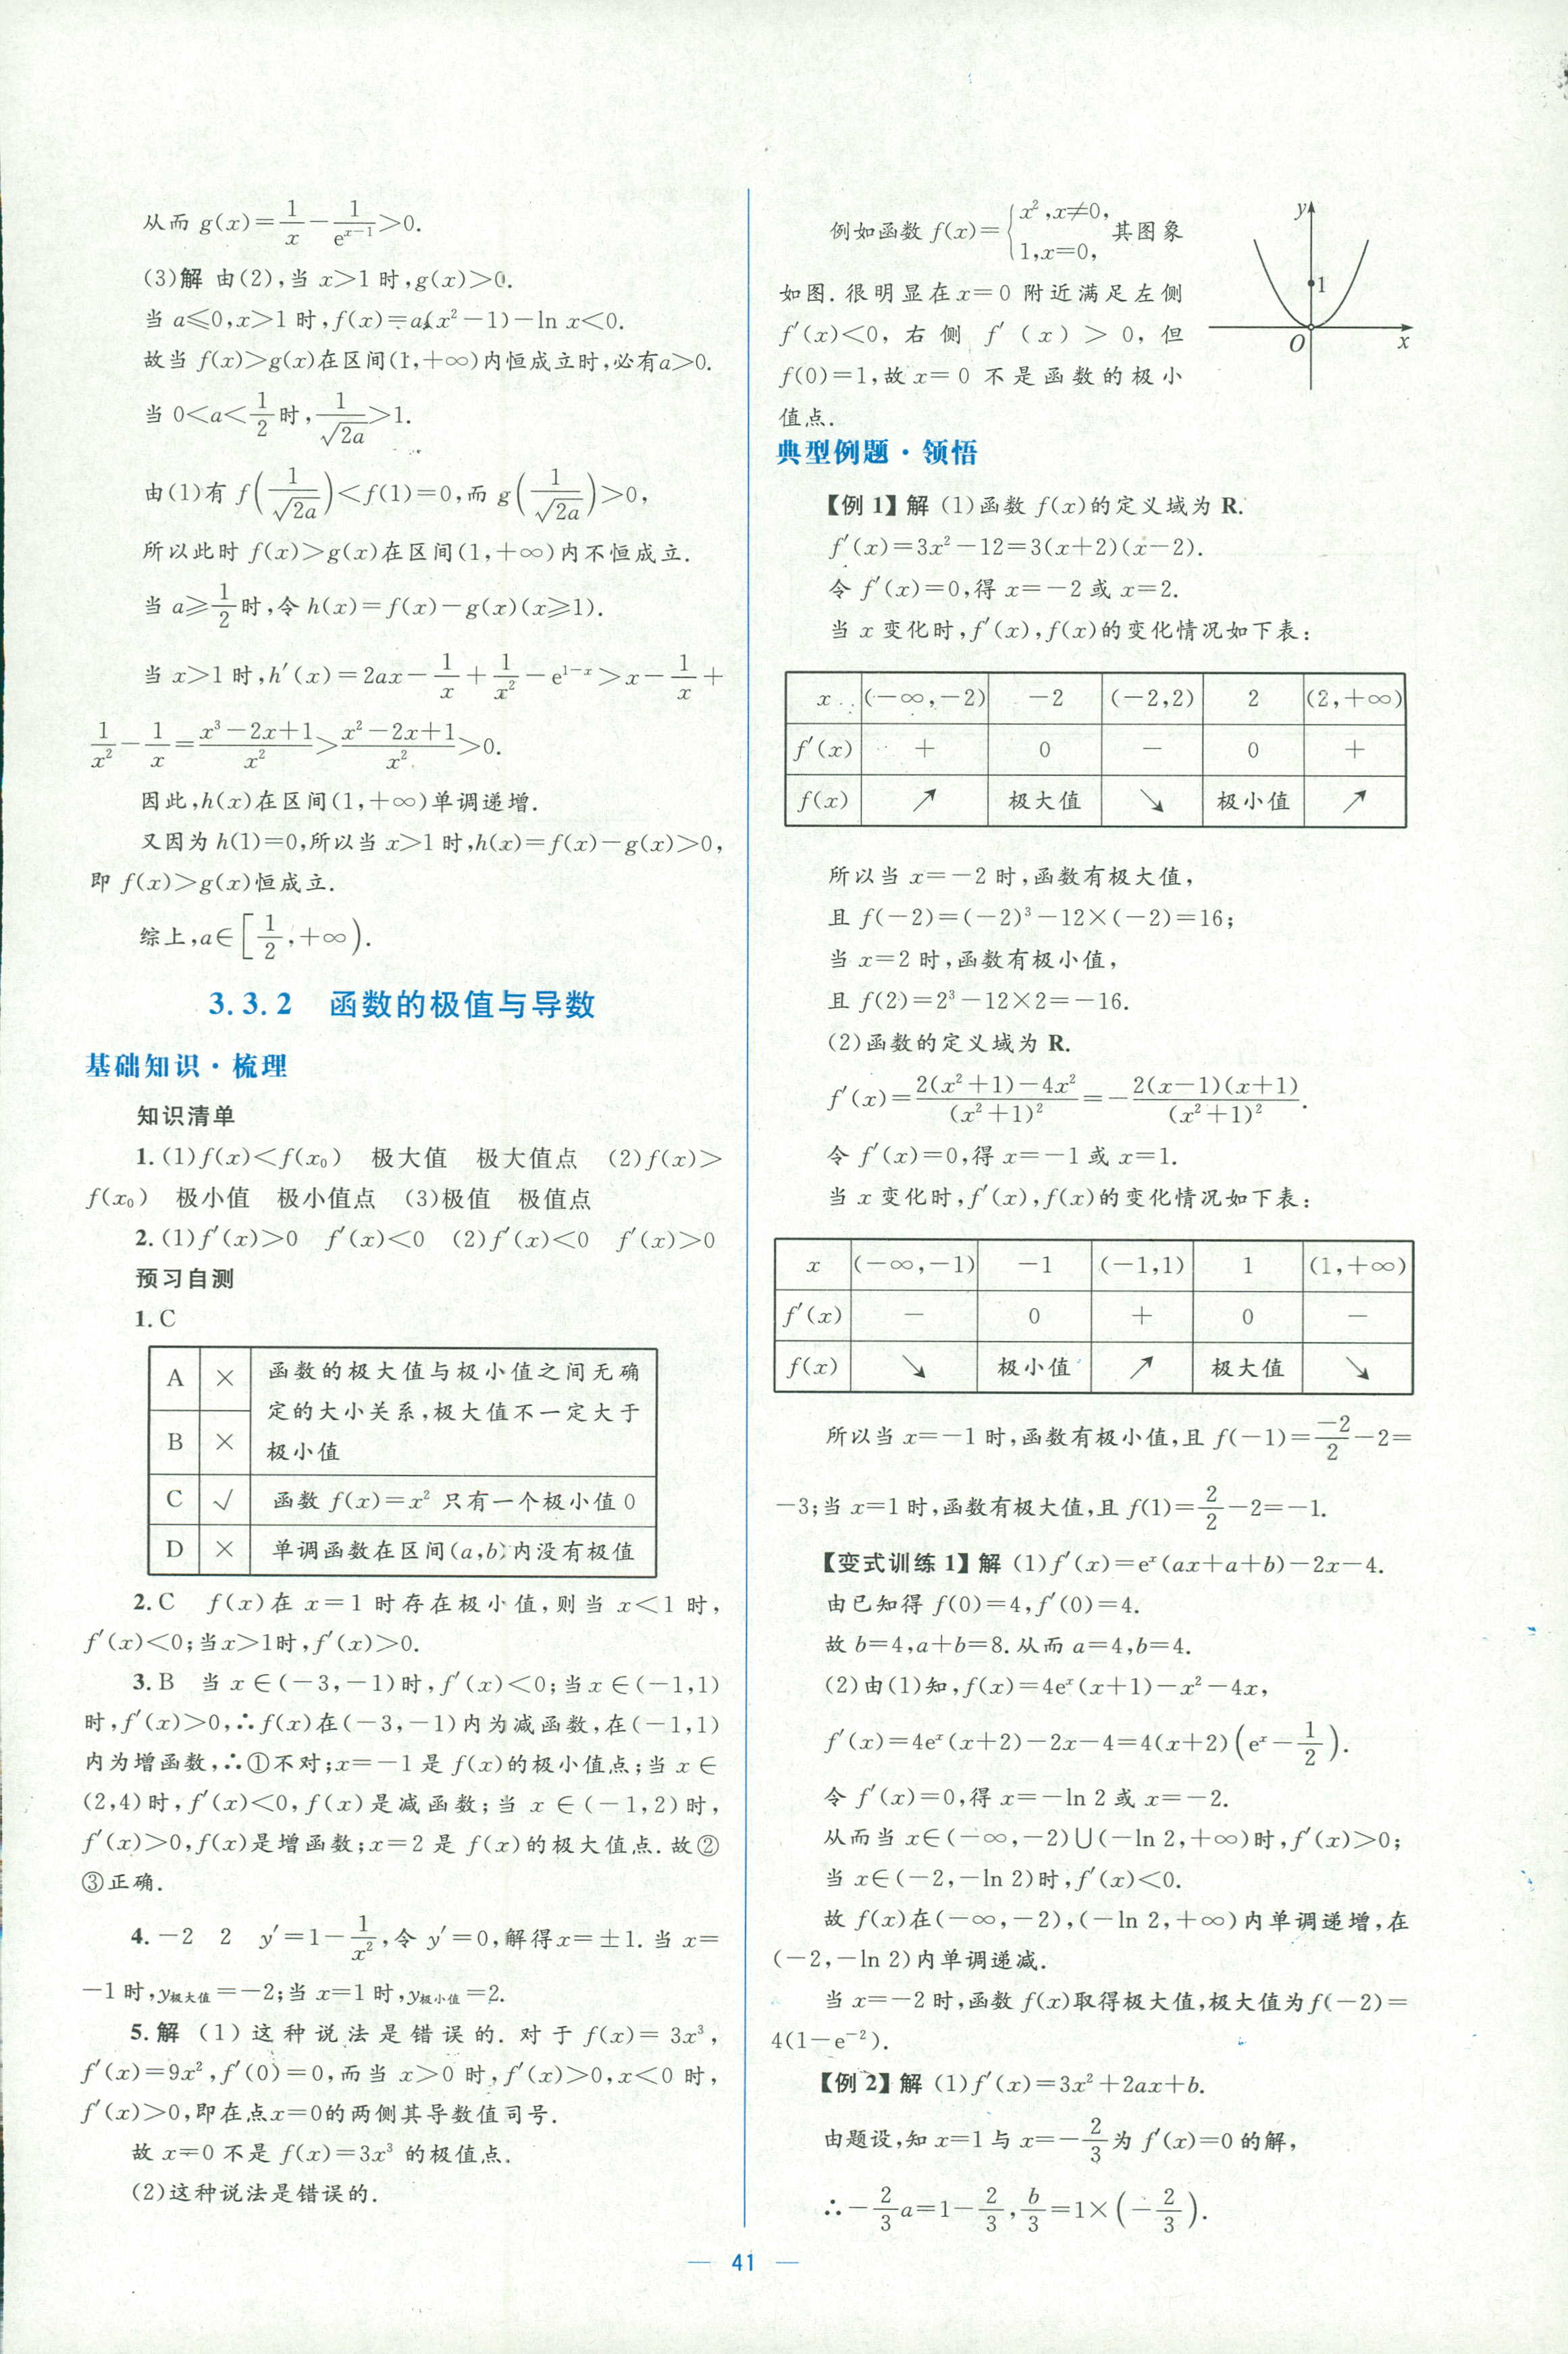 从而 g(x)=1/x-1/e^(x-1)>0.
(3)解 由(2),当 x>1 时,g(x)>0.
当 a≤0,x>1 时,f(x)=a(x²-1)-ln x<0.
故当 f(x)>g(x)在区间(1,+∞)内恒成立时,必有a>0.
当 0<a<1/2时,1/√(2a)>1.
由(1)有 f(1/√(2a))<f(1)=0,而 g(1/√(2a))>0,
所以此时 f(x)>g(x)在区间(1,+∞)内不恒成立.
当 a≥1/2时,令 h(x)=f(x)-g(x)(x≥1).
当 x>1 时,h′(x)=2ax-1/x+1/x²-e^(1-x)>x-1/x+
1/x²-1/x=(x³-2x+1)/x²>(x²-2x+1)/x²>0.
因此,h(x)在区间(1,+∞)单调递增.
又因为 h(1)=0,所以当 x>1 时,h(x)=f(x)-g(x)>0,
即 f(x)>g(x)恒成立.
综上,a∈[1/2,+∞).
3.3.2 函数的极值与导数
基础知识·梳理
知识清单
1.(1)f(x)<f(x₀) 极大值 极大值点 (2)f(x)>
f(x₀) 极小值 极小值点 (3)极值 极值点
2.(1)f′(x)>0 f′(x)<0 (2)f′(x)<0 f′(x)>0
预习自测
1.C
A × 函数的极大值与极小值之间无确
定的大小关系,极大值不一定大于
B × 极小值
C √ 函数 f(x)=x² 只有一个极小值 0
D × 单调函数在区间(a,b)内没有极值
2.C f(x)在 x=1 时存在极小值,则当 x<1 时,
f′(x)<0;当x>1时,f′(x)>0.
3.B 当 x∈(-3,-1)时,f′(x)<0;当x∈(-1,1)
时,f′(x)>0,∴f(x)在(-3,-1)内为减函数,在(-1,1)
内为增函数,∴①不对;x=-1 是 f(x)的极小值点;当 x∈
(2,4)时,f′(x)<0,f(x)是减函数;当 x∈(-1,2)时,
f′(x)>0,f(x)是增函数;x=2 是 f(x)的极大值点.故②
③正确.
4.-2 2 y′=1-1/x²,令 y′=0,解得x=±1.当 x=
-1 时,y极大值=-2;当 x=1 时,y极小值=2.
5.解 (1)这种说法是错误的.对于 f(x)=3x³,
f′(x)=9x²,f′(0)=0,而当 x>0 时,f′(x)>0,x<0 时,
f′(x)>0,即在点x=0的两侧其导数值同号.
故 x=0 不是 f(x)=3x³ 的极值点.
(2)这种说法是错误的.
例如函数 f(x)={x²,x≠0, 1,x=0, 其图象
如图.很明显在 x=0 附近满足左侧
f′(x)<0,右侧 f′(x)>0,但
f(0)=1,故 x=0 不是函数的极小
值点.
y
1
O
x
典型例题·领悟
【例 1】解 (1)函数 f(x)的定义域为 R.
f′(x)=3x²-12=3(x+2)(x-2).
令 f′(x)=0,得 x=-2 或 x=2.
当 x 变化时,f′(x),f(x)的变化情况如下表:
x (-∞,-2) -2 (-2,2) 2 (2,+∞)
f′(x) + 0 - 0 +
f(x) ↗ 极大值 ↘ 极小值 ↗
所以当 x=-2 时,函数有极大值,
且 f(-2)=(-2)³-12×(-2)=16;
当 x=2 时,函数有极小值,
且 f(2)=2³-12×2=-16.
(2)函数的定义域为 R.
f′(x)=(2(x²+1)-4x²)/(x²+1)²=-2(x-1)(x+1)/(x²+1)².
令 f′(x)=0,得 x=-1 或 x=1.
当 x 变化时,f′(x),f(x)的变化情况如下表:
x (-∞,-1) -1 (-1,1) 1 (1,+∞)
f′(x) - 0 + 0 -
f(x) ↘ 极小值 ↗ 极大值 ↘
所以当 x=-1 时,函数有极小值,且 f(-1)=-2/2-2=
-3;当 x=1 时,函数有极大值,且 f(1)=2/2-2=-1.
【变式训练 1】解 (1)f′(x)=eˣ(ax+a+b)-2x-4.
由已知得 f(0)=4,f′(0)=4.
故 b=4,a+b=8.从而 a=4,b=4.
(2)由(1)知,f(x)=4eˣ(x+1)-x²-4x,
f′(x)=4eˣ(x+2)-2x-4=4(x+2)(eˣ-1/2).
令 f′(x)=0,得 x=-ln 2 或 x=-2.
从而当 x∈(-∞,-2)∪(-ln 2,+∞)时,f′(x)>0;
当 x∈(-2,-ln 2)时,f′(x)<0.
故 f(x)在(-∞,-2),(-ln 2,+∞)内单调递增,在
(-2,-ln 2)内单调递减.
当 x=-2 时,函数 f(x)取得极大值,极大值为 f(-2)=
4(1-e⁻²).
【例 2】解 (1)f′(x)=3x²+2ax+b.
由题设,知 x=1 与 x=-2/3为 f′(x)=0 的解,
∴-2/3a=1-2/3,b/3=1×(-2/3).
— 41 —